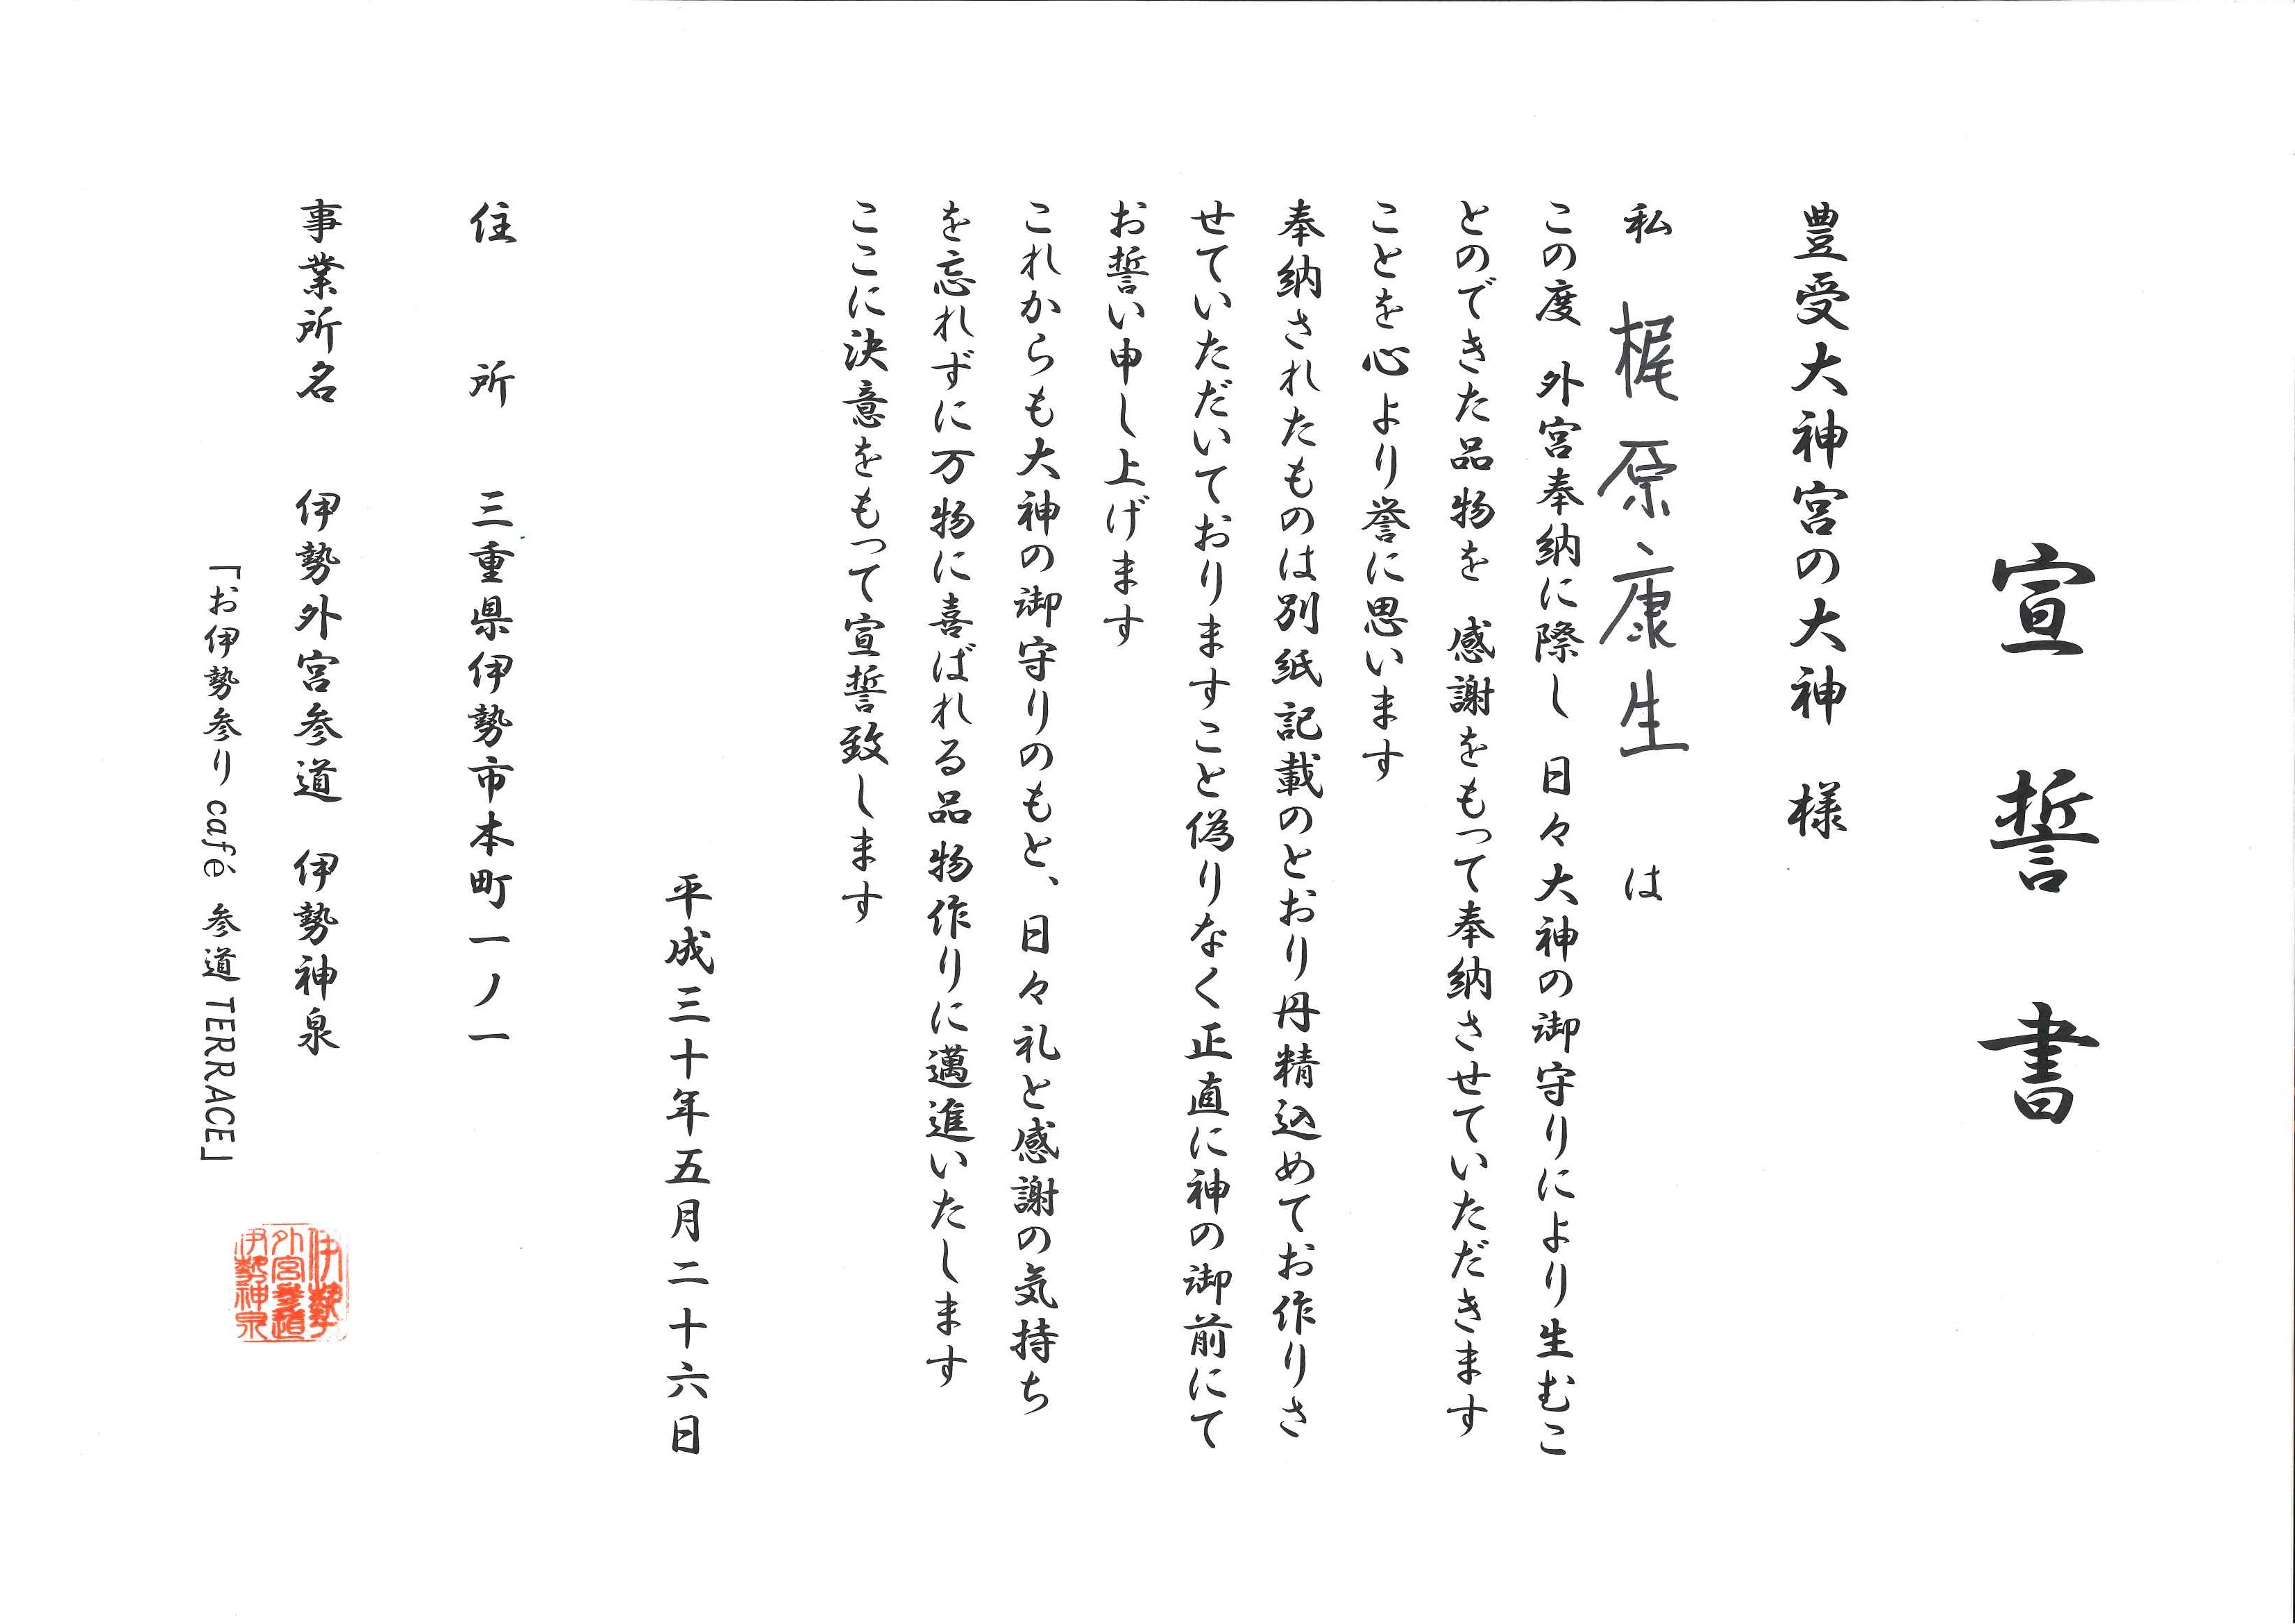 宣誓書
豊受大神宮の大神　様
私　梶原康生　は
この度　外宮奉納に際し　日々大神の御守りにより生むこ
とのできた品物を　感謝をもって奉納させていただきます
ことを心より誉に思います
奉納されたものは別紙記載のとおり丹精込めてお作りさ
せていただいておりますこと偽りなく正直に神の御前にて
お誓い申し上げます
これからも大神の御守りのもと、日々礼と感謝の気持ち
を忘れずに万物に喜ばれる品物作りに邁進いたします
ここに決意をもって宣誓致します
平成三十年五月二十六日
住　所　三重県伊勢市本町一ノ一
事業所名　伊勢外宮参道　伊勢神泉
「お伊勢参り café 参道 TERRACE」
伊勢
外宮参道
伊勢神泉